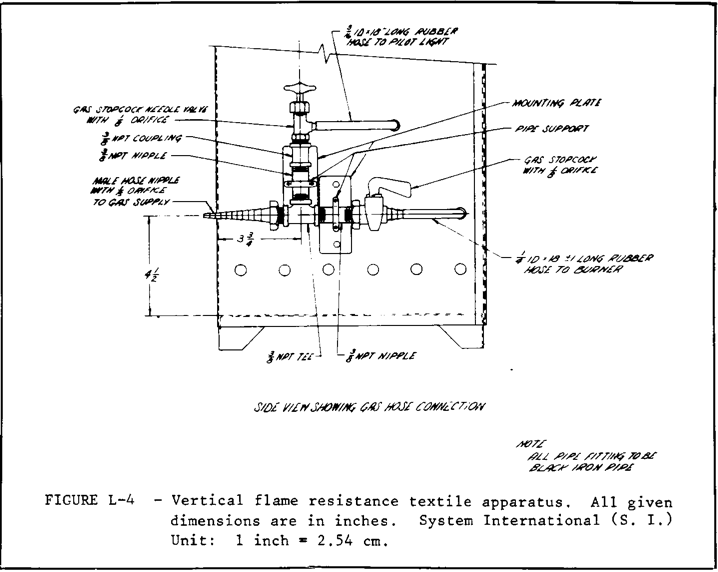 3/8 ID × 18" LONG RUBBER
HOSE TO PILOT LIGHT
GAS STOPCOCK NEEDLE VALVE
WITH 1/8 ORIFICE
3/8 NPT COUPLING
3/8 NPT NIPPLE
MALE HOSE NIPPLE
WITH 1/8 ORIFICE
TO GAS SUPPLY
MOUNTING PLATE
PIPE SUPPORT
GAS STOPCOCK
WITH 1/8 ORIFICE
3 3/4
4 1/2
ID × 18 ±1 LONG RUBBER
HOSE TO BURNER
3/8 NPT TEE
3/8 NPT NIPPLE
SIDE VIEW SHOWING GAS HOSE CONNECTION
NOTE
ALL PIPE FITTING TO BE
BLACK IRON PIPE
FIGURE L-4 - Vertical flame resistance textile apparatus. All given
dimensions are in inches. System International (S. I.)
Unit: 1 inch = 2.54 cm.